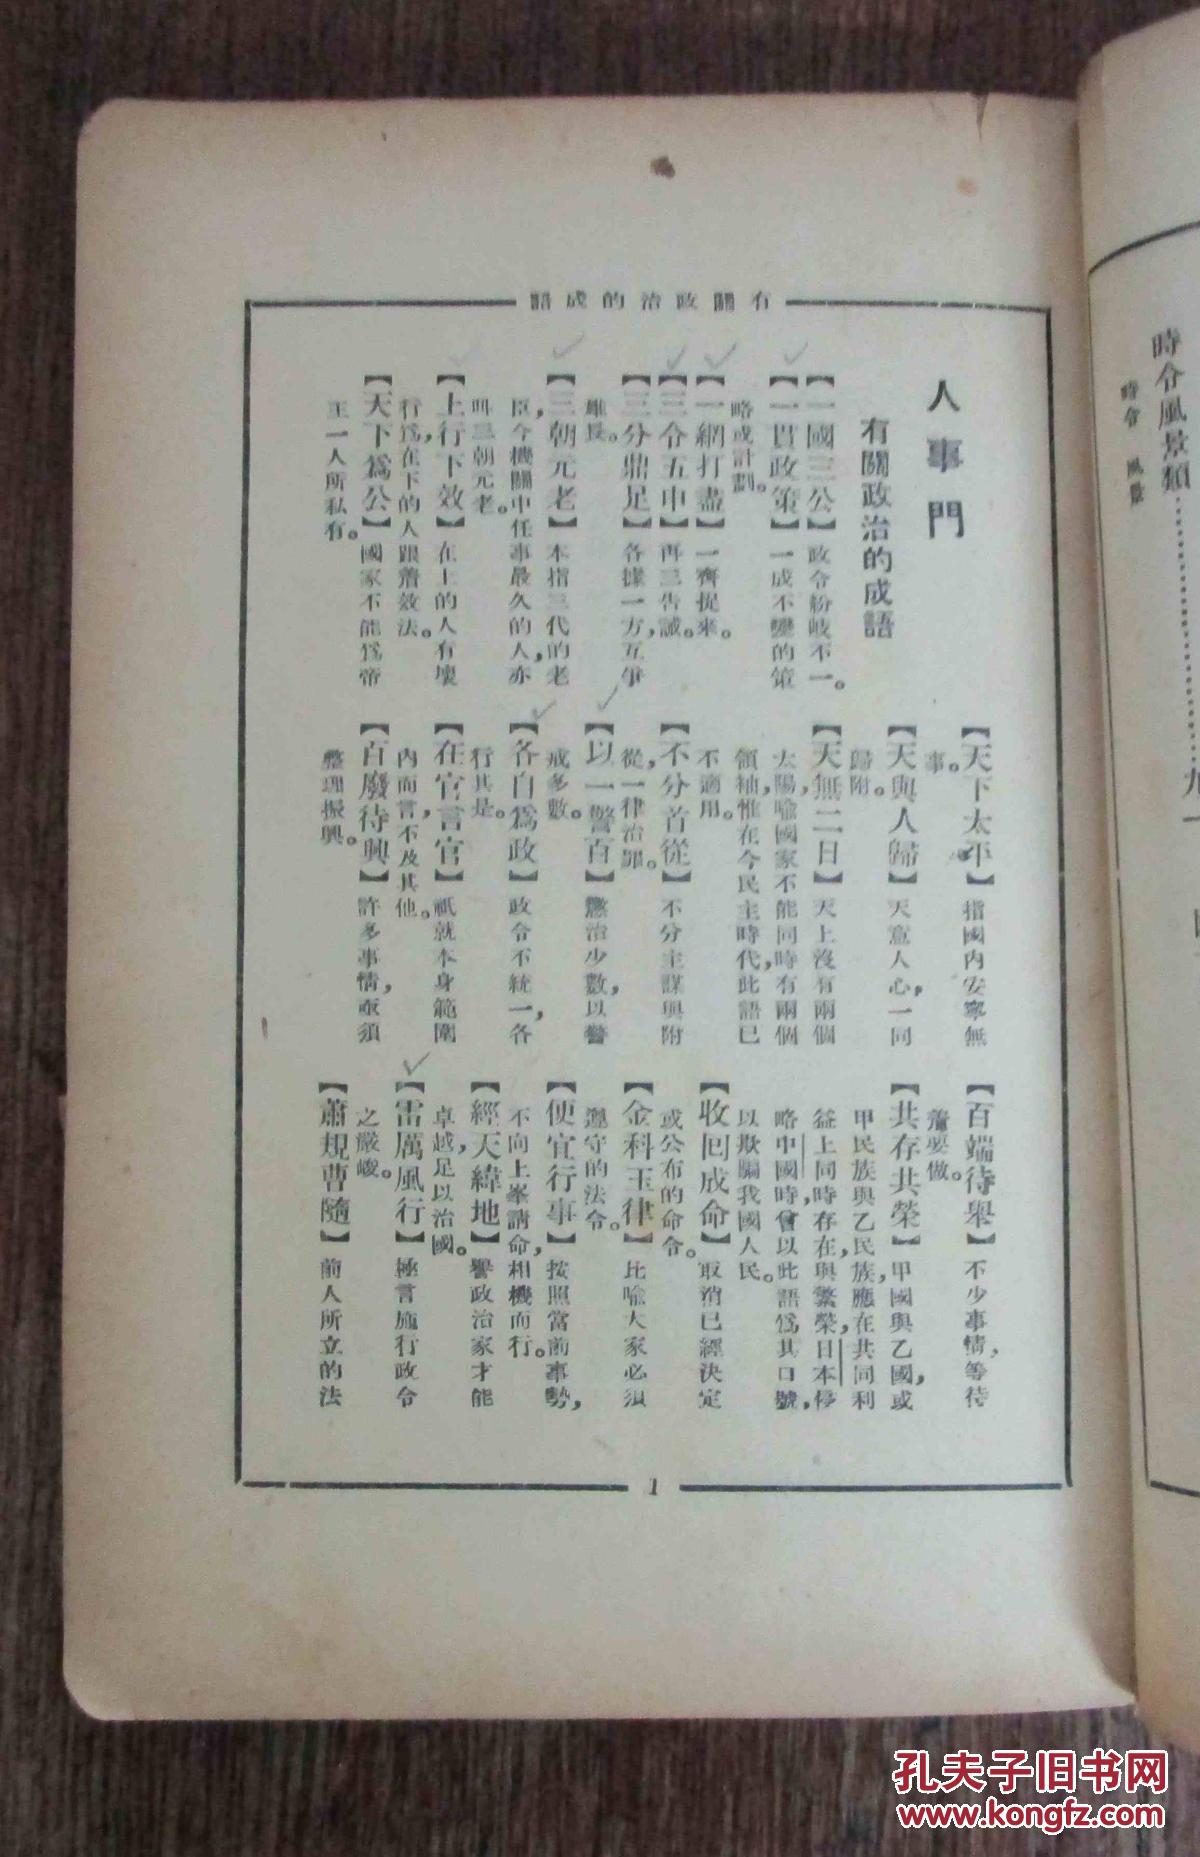 有關政治的成語
人事門
有關政治的成語
【一國三公】政令紛歧不一。
【一貫政策】一成不變的策
略或計劃。
【一網打盡】一齊捉來。
【三令五申】再三告誡。
【三分鼎足】各據一方，互爭
雄長。
【三朝元老】本指三代的老
臣，今機關中任事最久的人，亦
叫三朝元老。
【上行下效】在上的人有壞
行爲，在下的人跟着效法。
【天下爲公】國家不能爲帝
王一人所私有。
【天下太平】指國內安寧無
事。
【天與人歸】天意人心，一同
歸附。
【天無二日】天上沒有兩個
太陽，喻國家不能同時有兩個
領袖，惟在今民主時代，此語已
不適用。
【不分首從】不分主謀與附
從，一律治罪。
【以一警百】懲治少數，以警
戒多數。
【各自爲政】政令不統一，各
行其是。
【在官言官】祇就本身範圍
內而言，不及其他。
【百廢待興】許多事情，亟須
整理振興。
【百端待舉】不少事情，等待
着要做。
【共存共榮】甲國與乙國，或
甲民族與乙民族，應在共同利
益上同時存在，與繁榮，日本侵
略中國時，曾以此語爲其口號，
以欺騙我國人民。
【收回成命】取消已經決定
或公布的命令。
【金科玉律】比喻大家必須
遵守的法令。
【便宜行事】按照當前事勢，
不向上峯請命，相機而行。
【經天緯地】譽政治家才能
卓越，足以治國。
【雷厲風行】極言施行政令
之嚴峻。
【蕭規曹隨】前人所立的法
1
時令風景類……九一
時令 風景
孔夫子旧书网
www.kongfz.com